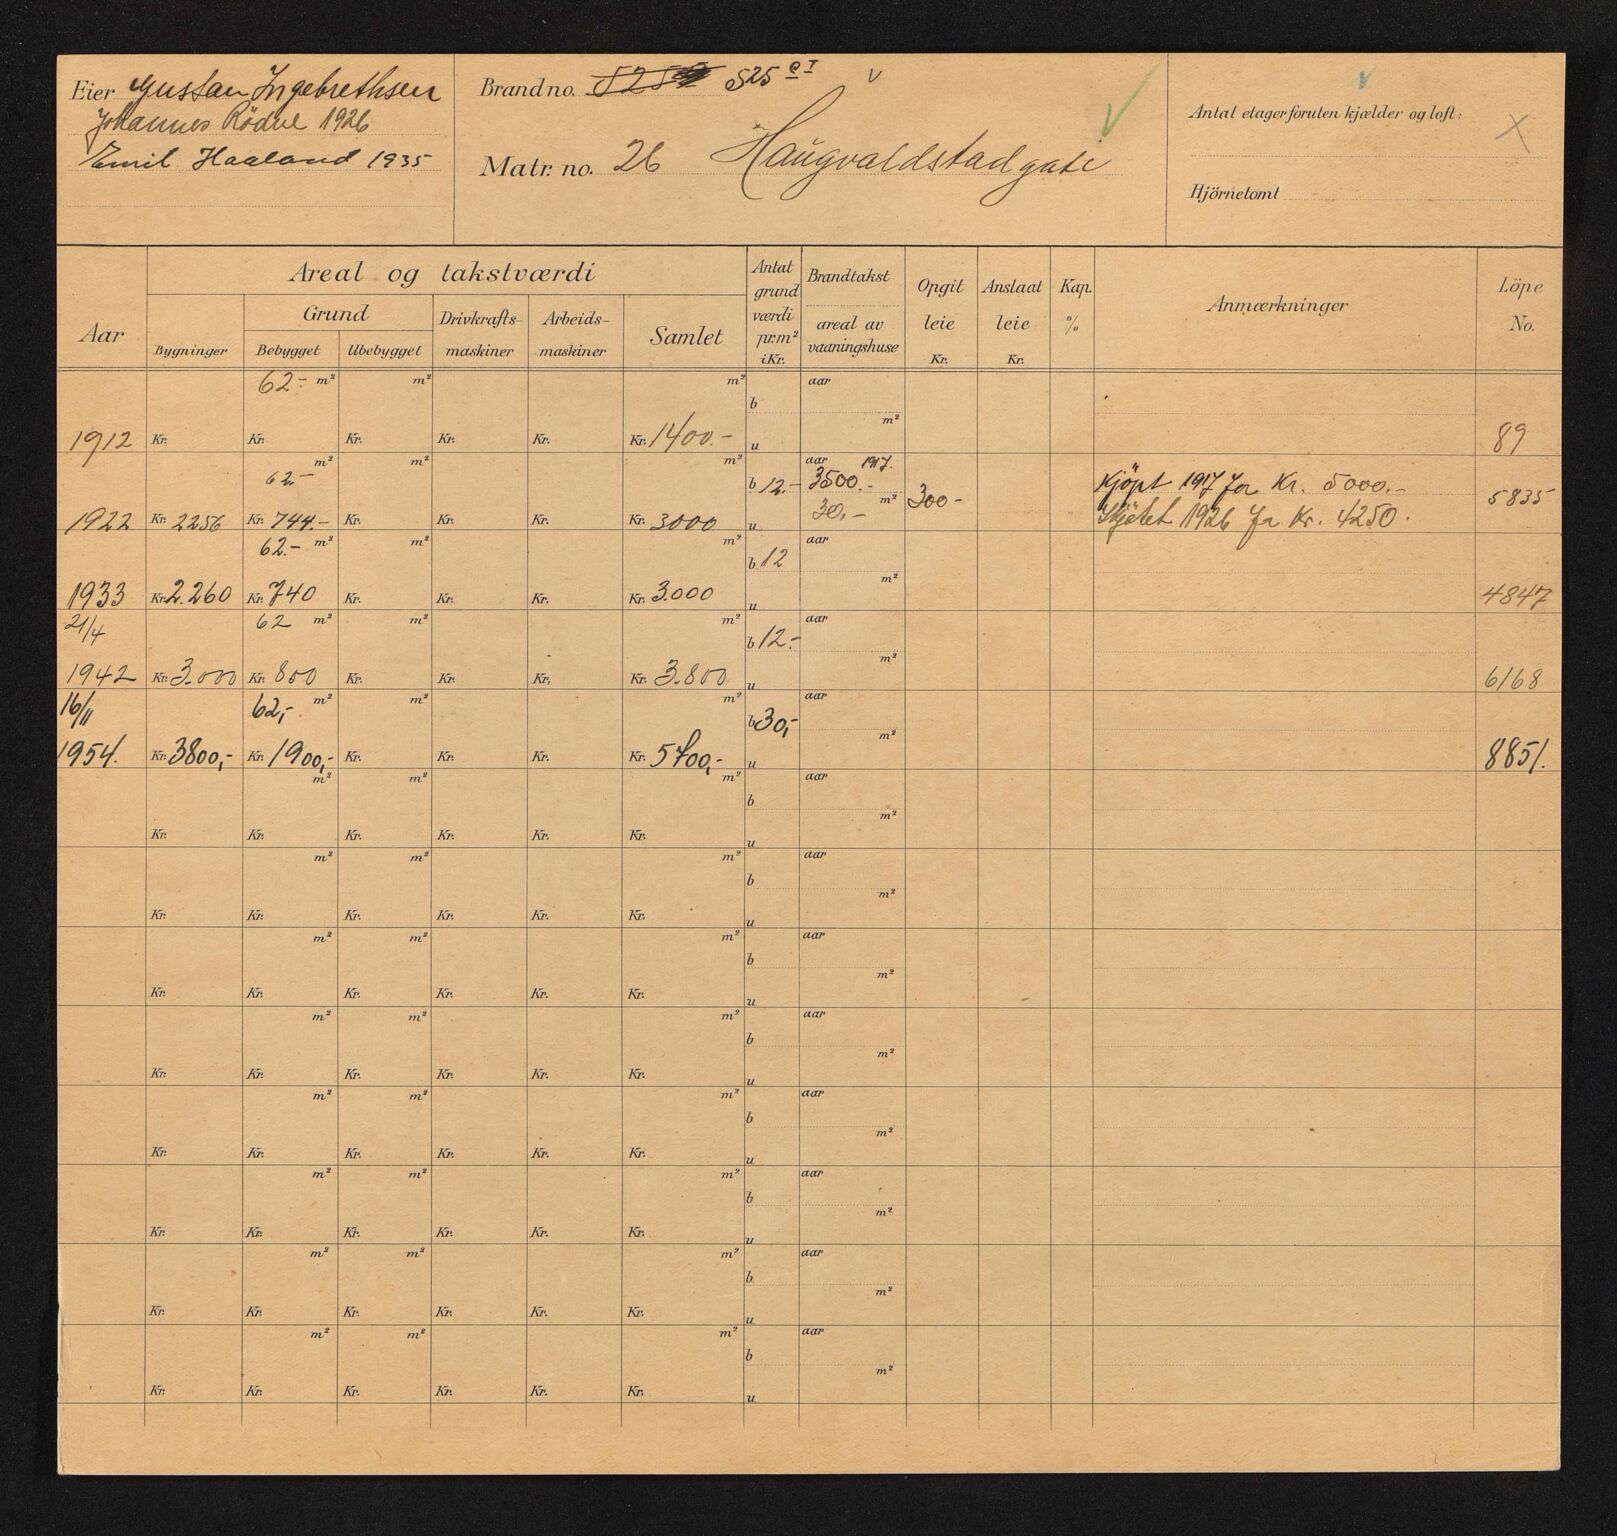 Eier Gustav Ingebrethsen
Johannes Rödne 1926
Emil Haaland 1935
Brand no. 525 e I
Matr. no. 26 Haugvaldstadgate
Antal etager foruten kjælder og loft:
Hjörnetomt
Aar
Areal og takstværdi
Bygninger
Grund
Bebygget
Ubebygget
Drivkrafts-
maskiner
Arbeids-
maskiner
Samlet
Antat
grund
værdi
pr. m²
i Kr.
Brandtakst
areal av
vaaningshuse
Opgit
leie
Kr.
Anslaat
leie
Kr.
Kap.
%
Anmærkninger
Löpe
No.
62.- m² m² m² b aar
m²
1912 Kr. Kr. Kr. Kr. Kr. Kr. 1400.- u 89
62.- m² m² m² b 12.- aar 1917.
3500.- m² 300- Kjöpt 1917 for Kr. 5000.- 5835
1922 Kr. 2256 Kr. 744.- Kr. Kr. Kr. Kr. 3000 u 30.- Skjötet 1926 for Kr. 4250.
62.- m² m² m² b 12 aar
m²
1933 Kr. 2.260 Kr. 740 Kr. Kr. Kr. Kr. 3.000 u 4847
21/4 62 m² m² m² b 12.- aar
m²
1942 Kr. 3.000 Kr. 800 Kr. Kr. Kr. Kr. 3.800 u 6168
16/11 62,- m² m² m² b 30,- aar
m²
1954. Kr. 3800,- Kr. 1900,- Kr. Kr. Kr. Kr. 5700,- u 8851.
m² m² m² b aar
m²
Kr. Kr. Kr. Kr. Kr. Kr. u
m² m² m² b aar
m²
Kr. Kr. Kr. Kr. Kr. Kr. u
m² m² m² b aar
m²
Kr. Kr. Kr. Kr. Kr. Kr. u
m² m² m² b aar
m²
Kr. Kr. Kr. Kr. Kr. Kr. u
m² m² m² b aar
m²
Kr. Kr. Kr. Kr. Kr. Kr. u
m² m² m² b aar
m²
Kr. Kr. Kr. Kr. Kr. Kr. u
m² m² m² b aar
m²
Kr. Kr. Kr. Kr. Kr. Kr. u
m² m² m² b aar
m²
Kr. Kr. Kr. Kr. Kr. Kr. u